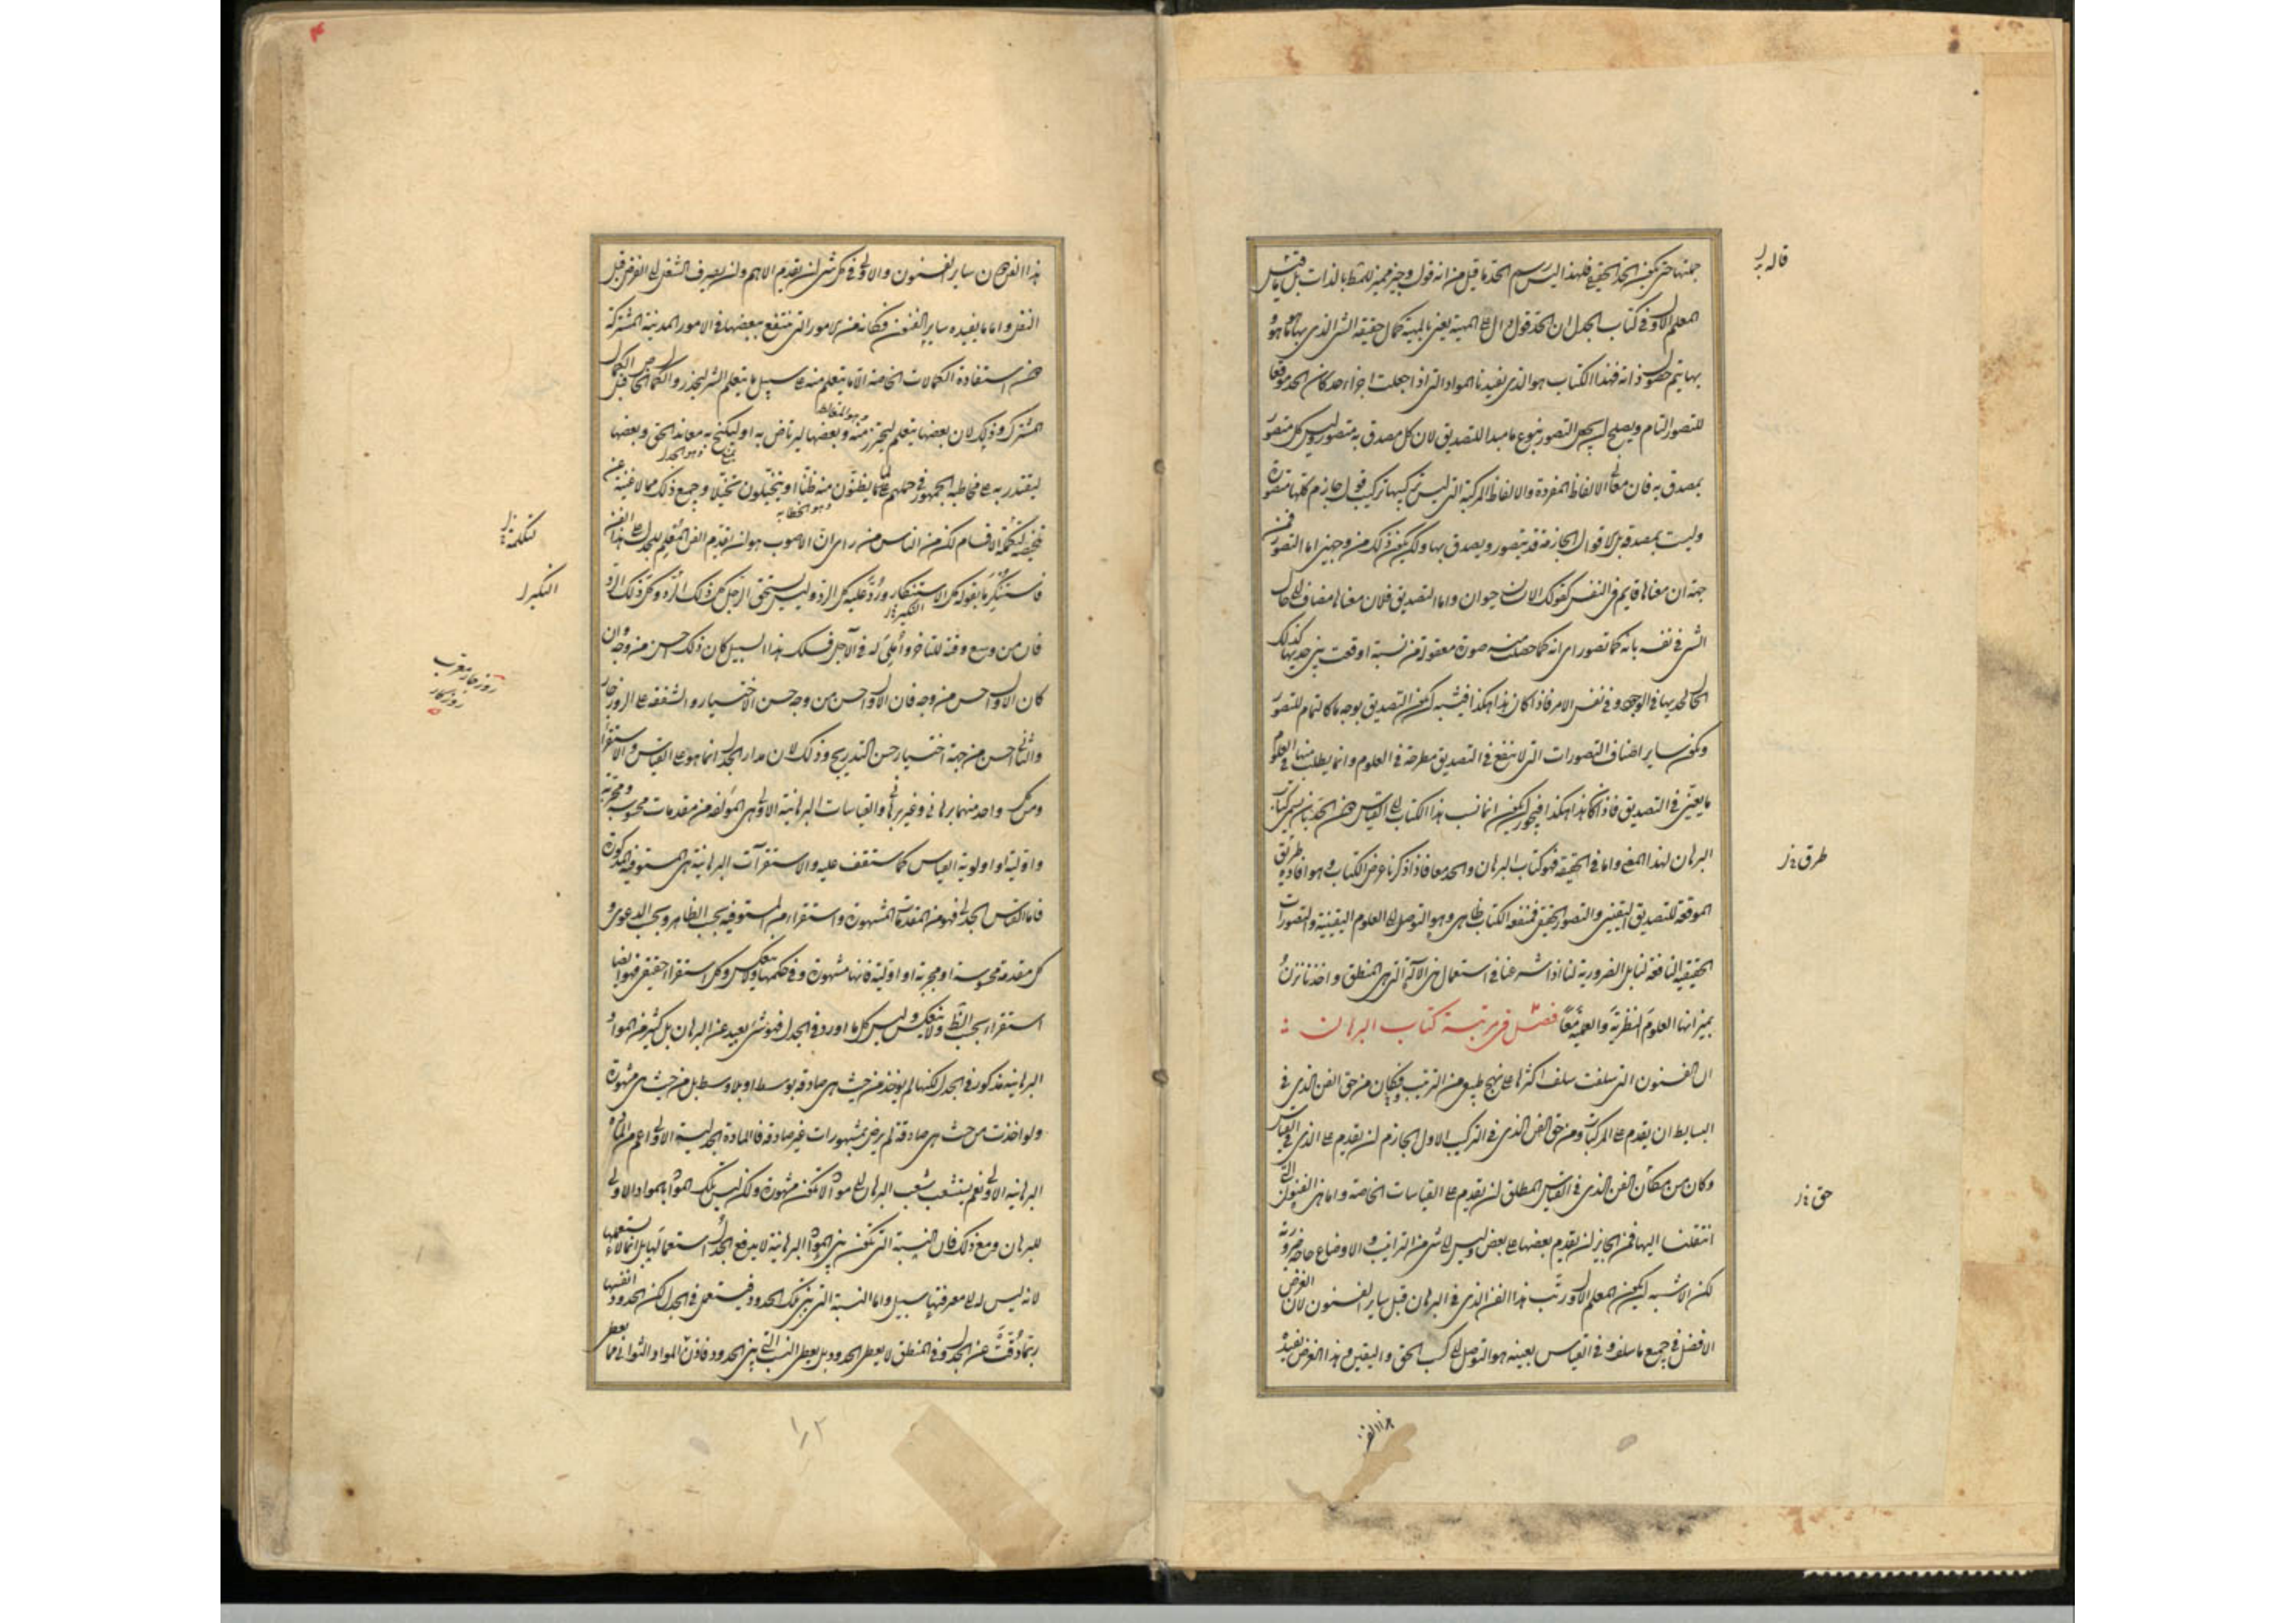 جهتها حتى يكون الحد الحقيقي فلهذا ليس رسم الحد ما قيل من انه قول وجيز مميز للمط بالذات بل ما قاله
المعلم الاول في كتاب الجدل ان الحد قول دال على المهية يعني بالمهية كمال حقيقة الشئ الذي بها هو ما هو و
بها يتم حصول ذاته فهذا الكتاب هو الذي يفيدنا المواد التي اذا جعلت اجزاء حد كان الحد موقعا
للتصور التام ويصلح ان يجعل التصور بنوع ما مبدا للتصديق لان كل مصدق به متصور وليس كل متصور
بمصدق به فان معاني الالفاظ المفردة والالفاظ المركبة التي ليس تركيبها تركيب قول جازم كلها متصورة
وليست بمصدقة بل الاقوال الجازمة قد يتصور ويصدق بها ولكن يكون ذلك من وجهين اما التصور فمن
جهة ان معناها قايم في النفس كقولك الانسان حيوان واما التصديق فلان معناها مضاف الى حال
الشئ في نفسه بانه كما تصور اى انه كما حصلت منه صورة معقولة من نسبة اوقعت بين حديها كذلك
الحال لحديها في الوجود وفي نفس الامر فاذا كان هذا هكذا فيشبه ان يكون التصديق بوجه ما كالتمام للتصور
ويكون ساير اصناف التصورات التي لا ينفع في التصديق مطرحة في العلوم وانما يطلب منها في العلوم
ما يعين في التصديق فاذا كان هذا هكذا فيجوز ان يكون انما نسب هذا الكتاب الى القياس دون الحد بان سمي كتاب
البرهان لهذا المعنى واما في الحقيقة فهو كتاب البرهان والحد معا فاذ ذكرنا غرض الكتاب وهو افادة طريق
الموقعة للتصديق اليقيني والتصور الحقيقي فمنفعة الكتاب ظاهرة وهو التوصل الى العلوم اليقينية والتصورات
الحقيقية النافعة لنا بل الضرورية لنا اذا شرعنا في استعمال هذه الآلة التي هي المنطق واخذنا نزن
بميزانها العلوم النظرية والعملية معا فصل في مرتبة كتاب البرهان
ان الفنون التي سلفت سلف اكثرها على نهج طبيعي من الترتيب فكان من حق الفن الذي في
البسايط ان يقدم على المركبات ومن حق الفن الذي في التركيب الاول الجازم ان يقدم على الذي في القياس
وكان من حق الفن الذي في القياس المطلق ان يقدم على القياسات الخاصة واما هذه الفنون التي
انتقلنا اليها فمن الجايز ان يقدم بعضها على بعض وليس الى شئ من التراتيب والاوضاع حاجة ضرورية
لكن الاشبه ان يكون المعلم الاول رتب هذا الفن الذي في البرهان قبل ساير الفنون لان الغرض
الافضل في جميع ما سلف وفي القياس بعينه هو التوصل الى كسب الحق واليقين وهذا الغرض يفيده
قاله
طرق
حق
هذا الفن
هذا الفن دون ساير الفنون والاولى في كل شئ ان يقدم الاهم وان يصرف الشغل الى الفرض قبل
النفل واما ما يفيده ساير الفنون فكانه من الامور التي ينتفع ببعضها في الامور المدنية المشتركة
دون استفادة الكمالات الخاصة الا ما يتعلم منه على سبيل ما يتعلم الشر ليحذر والكمال الخاص قبل الكمال
المشترك وذلك لان بعضها يتعلم ليحترز منه وبعضها ليرتاض به او ليكبح به معاند الحق وبعضها
وهو المغالطة
وهو الجدل
ليقتدر به على مخاطبة الجمهور في حملهم على ما يظنون منه ظنا او يتخيلون تخيلا وجميع ذلك مما لا غنية عن
وهو الخطابة
لكن من الناس من راى ان الاصوب هو ان يقدم الفن المعلم للجدل على هذا الفن
فاستنكر ما يقوله كل الاستنكار ورد عليه كل الرد وليس يستحق الرجل كل ذلك الرد وكل ذلك
النكير
فان من وسع وقته للتاخر واملى له في الاجل فسلك هذا السبيل كان ذلك احسن من وجه وان
كان الاول احسن من وجه فان الاول احسن من وجه حسن الاختيار والشفقة على الروزجار
والثاني احسن من جهة اختيار حسن التدريج وذلك لان مدار الجدل انما هو على القياس والاستقراء
ومن كل واحد منهما برهاني وغير برهاني والقياسات البرهانية الاولى هي المولفة من مقدمات محسوسة ومجربة
واولية او اولوية القياس كما ستقف عليه والاستقراآت البرهانية هي المستوفية المذكورة
فاما القياس الجدلي فهو من المقدمات المشهورة واستقراءه المستوفية بحسب الظاهر وبحسب الدعوى و
كل مقدمة محسوسة او مجربة او اولية فانها مشهورة وفي حكمها ولا ينعكس وكل استقراء حقيقي فهو ايضا
استقراء بحسب الظاهر ولا ينعكس وليس كل ما اورد في الجدل فهو شئ بعيد عن البرهان بل كثير من المواد
البرهانية مذكور في الجدل لكنها لم يوخذ من حيث هي صادقة بوسط او بلا وسط بل من حيث هي مشهورة
ولو اخذت من حيث هي صادقة لم يرض بمشهورات غير صادقة فالمادة الجدلية الاولى اعم من المادة
البرهانية الاولى نعم يتشعب شعب البرهان الى مواد لا تكون مشهورة ولكن ليس تلك المواد بالمواد الاولى
للبرهان ومع ذلك فان النسبة التي تكون بين المواد البرهانية لا يرفع الجدل استعمالها بل انما لا يستعملها
لانه ليس له الى معرفتها سبيل واما النسبة التي بين تلك الحدود فيستعمل في الجدل لكن الحدود انفسها
ربما دقت عن الجدل وفي المنطق لا يعطي الحدود بل يعطي النسب التي بين الحدود فاذن المواد الثواني مما يعطى
لتكملة
النكير
روزجار معرب
روزكار